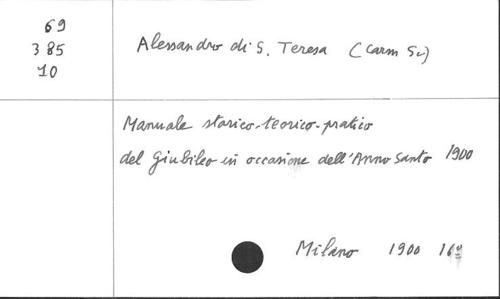 69
385
10
Alessandro di S. Teresa (Carm Sc)
Manuale storico-teorico-pratico
del Giubileo in occasione dell'Anno Santo 1900
Milano 1900 16º